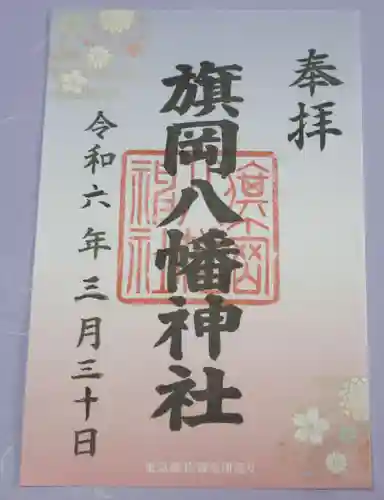 奉拝
旗岡八幡神社
令和六年三月三十日